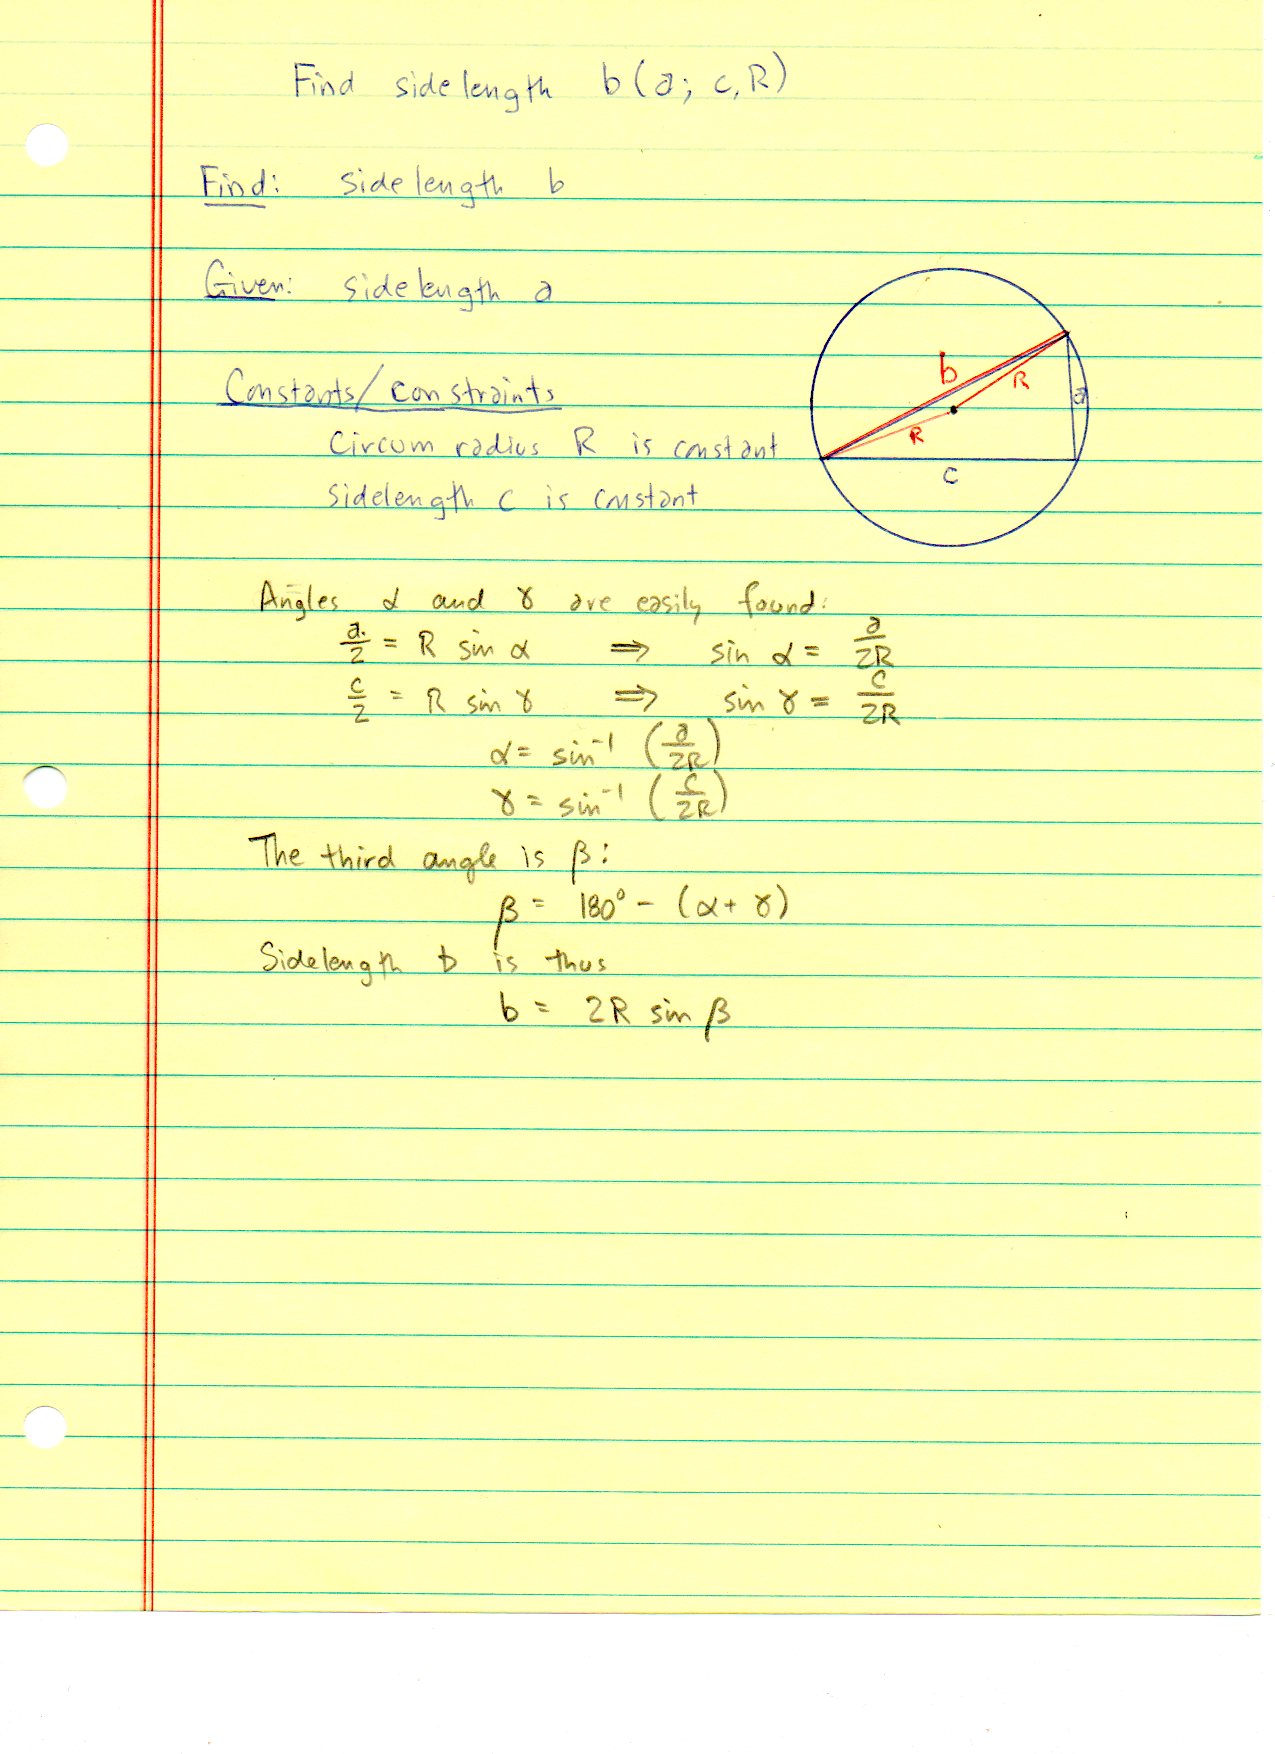 Find sidelength b(a; c, R)
Find: sidelength b
Given: sidelength a
Constants/constraints
Circumradius R is constant
sidelength c is constant
b
R
a
R
c
Angles α and γ are easily found:
a/2 = R sin α ⇒ sin α = a/2R
c/2 = R sin γ ⇒ sin γ = c/2R
α = sin⁻¹ (a/2R)
γ = sin⁻¹ (c/2R)
The third angle is β:
β = 180° - (α + γ)
Sidelength b is thus
b = 2R sin β